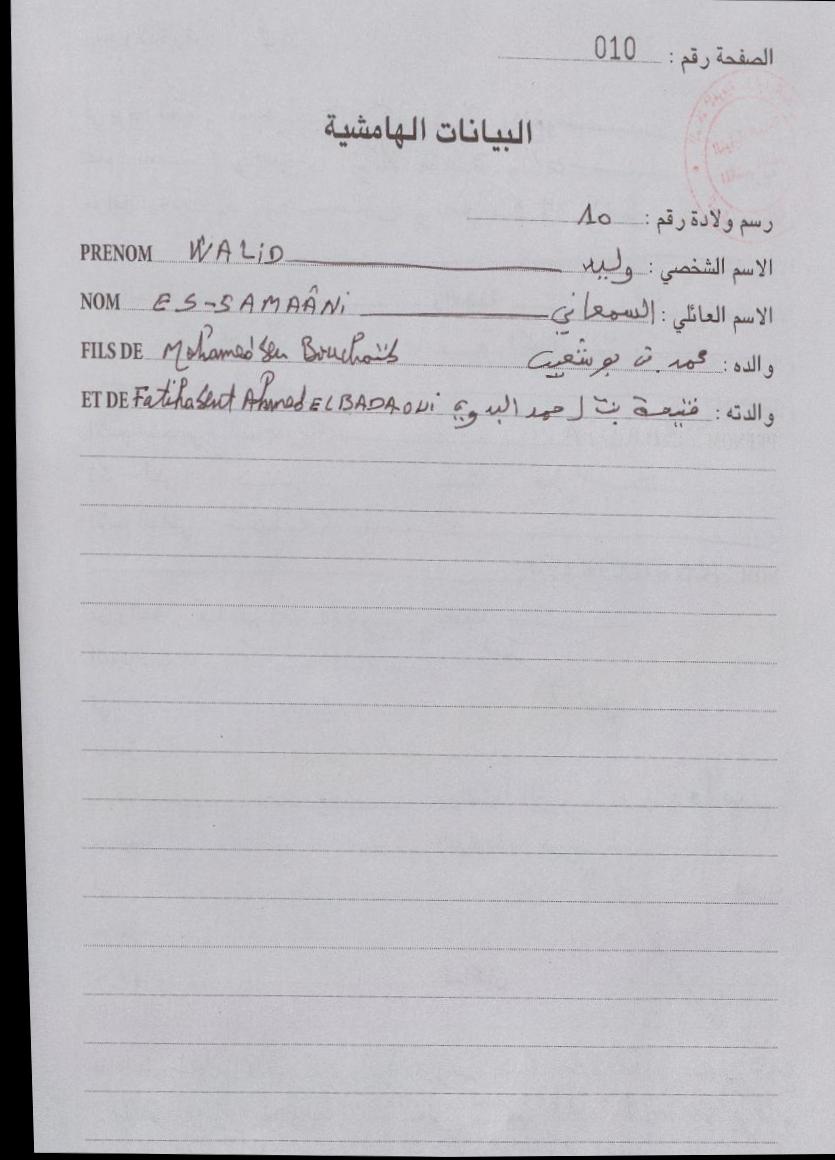 الصفحة رقم : 010
البيانات الهامشية
رسم ولادة رقم : 10
PRENOM WALiD وليد الاسم الشخصي :
NOM ES-SAMAÂNi السمعاني الاسم العائلي :
FILS DE Mohamed ben Bouchaïb محمد بن بوشعيب والده :
ET DE Fatiha bent Ahmed EL BADAOUi فتيحة بنت احمد البدوي والدته :